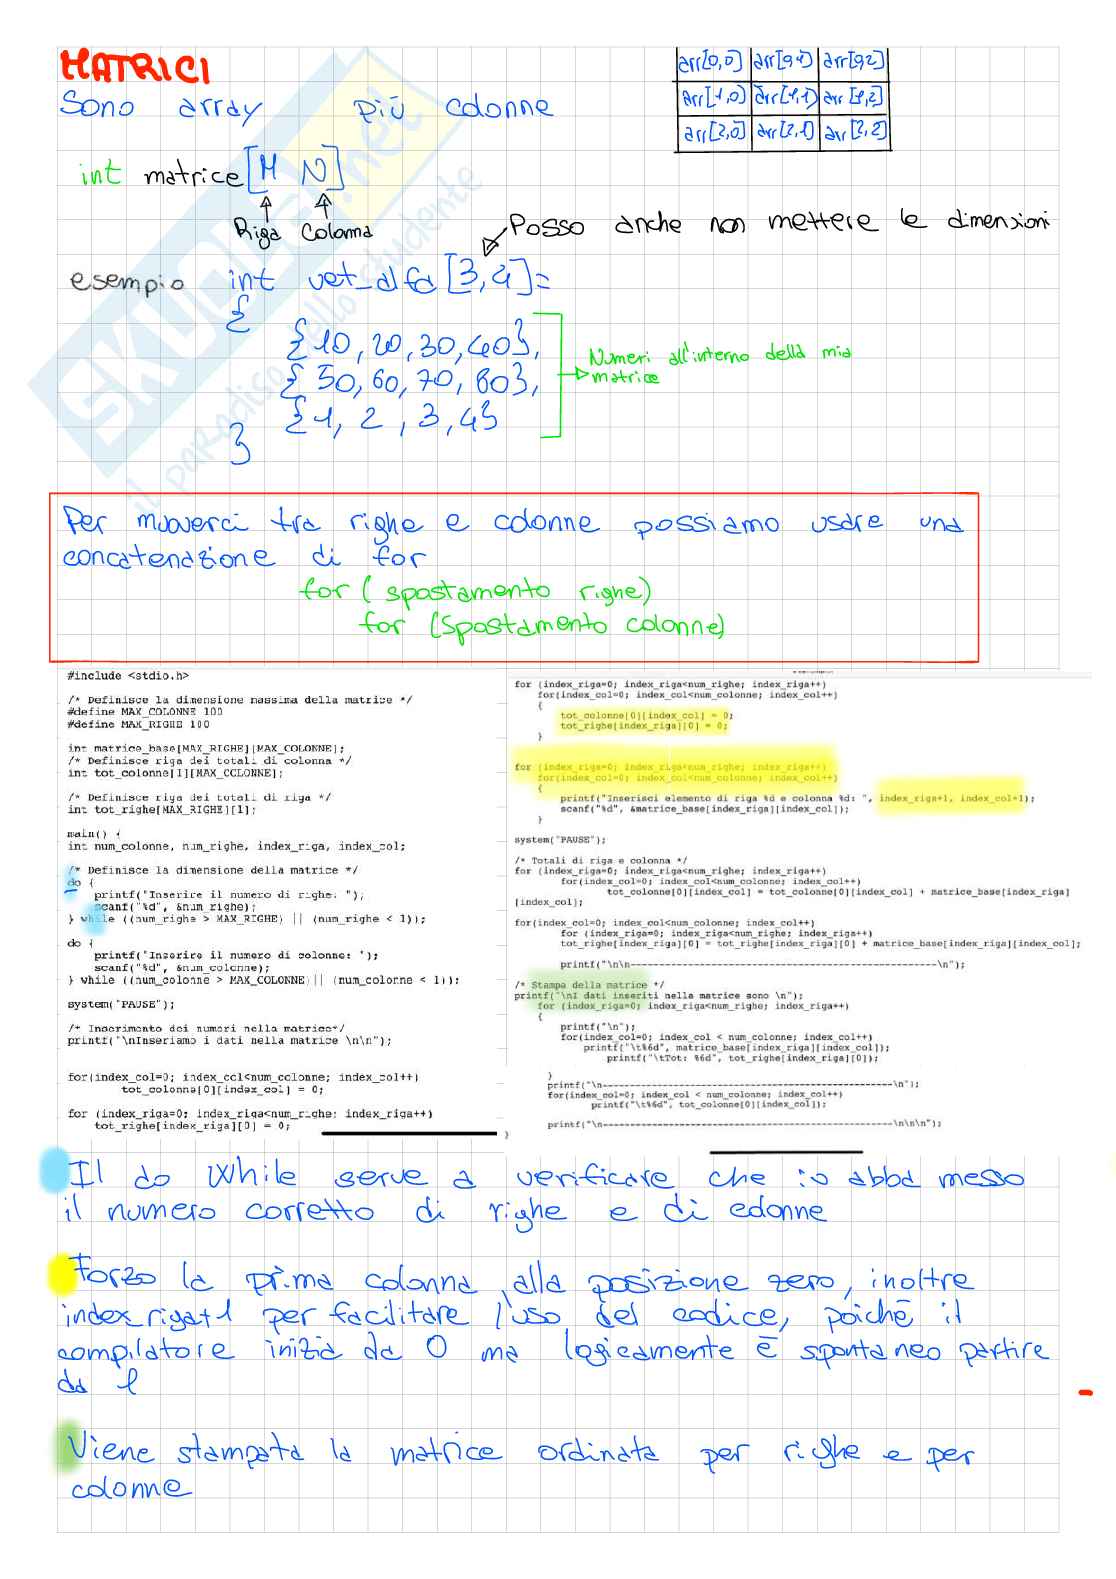 MATRICI
Sono array più colonne
arr[0,0] arr[0,1] arr[0,2]
arr[1,0] arr[1,1] arr[1,2]
arr[2,0] arr[2,1] arr[2,2]
int matrice[M N]
Riga Colonna
Posso anche non mettere le dimensioni
esempio int vet_alfa[3,4]=
{
{10, 20, 30, 40},
{50, 60, 70, 80},
{1, 2, 3, 4}
}
Numeri all'interno della mia
matrice
SKUOLA.net
il paradiso dello studente
Per muoverci tra righe e colonne possiamo usare una
concatenazione di for
for ( spostamento righe)
for (spostamento colonne)
#include <stdio.h>
/* Definisce la dimensione massima della matrice */
#define MAX_COLONNE 100
#define MAX_RIGHE 100
int matrice_base[MAX_RIGHE][MAX_COLONNE];
/* Definisce riga dei totali di colonna */
int tot_colonne[1][MAX_COLONNE];
/* Definisce riga dei totali di riga */
int tot_righe[MAX_RIGHE][1];
main() {
int num_colonne, num_righe, index_riga, index_col;
/* Definisce la dimensione della matrice */
do {
printf("Inserire il numero di righe: ");
scanf("%d", &num_righe);
} while ((num_righe > MAX_RIGHE) || (num_righe < 1));
do {
printf("Inserire il numero di colonne: ");
scanf("%d", &num_colonne);
} while ((num_colonne > MAX_COLONNE)|| (num_colonne < 1));
system("PAUSE");
/* Inserimento dei numeri nella matrice*/
printf("\nInseriamo i dati nella matrice \n\n");
for(index_col=0; index_col<num_colonne; index_col++)
tot_colonne[0][index_col] = 0;
for (index_riga=0; index_riga<num_righe; index_riga++)
tot_righe[index_riga][0] = 0;
for (index_riga=0; index_riga<num_righe; index_riga++)
for(index_col=0; index_col<num_colonne; index_col++)
{
tot_colonne[0][index_col] = 0;
tot_righe[index_riga][0] = 0;
}
for (index_riga=0; index_riga<num_righe; index_riga++)
for(index_col=0; index_col<num_colonne; index_col++)
{
printf("Inserisci elemento di riga %d e colonna %d: ", index_riga+1, index_col+1);
scanf("%d", &matrice_base[index_riga][index_col]);
}
system("PAUSE");
/* Totali di riga e colonna */
for (index_riga=0; index_riga<num_righe; index_riga++)
for(index_col=0; index_col<num_colonne; index_col++)
tot_colonne[0][index_col] = tot_colonne[0][index_col] + matrice_base[index_riga]
[index_col];
for(index_col=0; index_col<num_colonne; index_col++)
for (index_riga=0; index_riga<num_righe; index_riga++)
tot_righe[index_riga][0] = tot_righe[index_riga][0] + matrice_base[index_riga][index_col];
printf("\n\n-------------------------------------------------\n");
/* Stampa della matrice */
printf("\nI dati inseriti nella matrice sono \n");
for (index_riga=0; index_riga<num_righe; index_riga++)
{
printf("\n");
for(index_col=0; index_col < num_colonne; index_col++)
printf("\t%6d", matrice_base[index_riga][index_col]);
printf("\tTot: %6d", tot_righe[index_riga][0]);
}
printf("\n-------------------------------------------------\n");
for(index_col=0; index_col < num_colonne; index_col++)
printf("\t%6d", tot_colonne[0][index_col]);
printf("\n-------------------------------------------------\n\n\n");
}
Il do While serve a verificare che io abba messo
il numero corretto di righe e di colonne
Forzo la prima colonna alla posizione zero, inoltre
index_riga+1 per facilitare l'uso del codice, poichè il
compilatore inizia da 0 ma logicamente è spontaneo partire
da 1
Viene stampata la matrice ordinata per righe e per
colonne